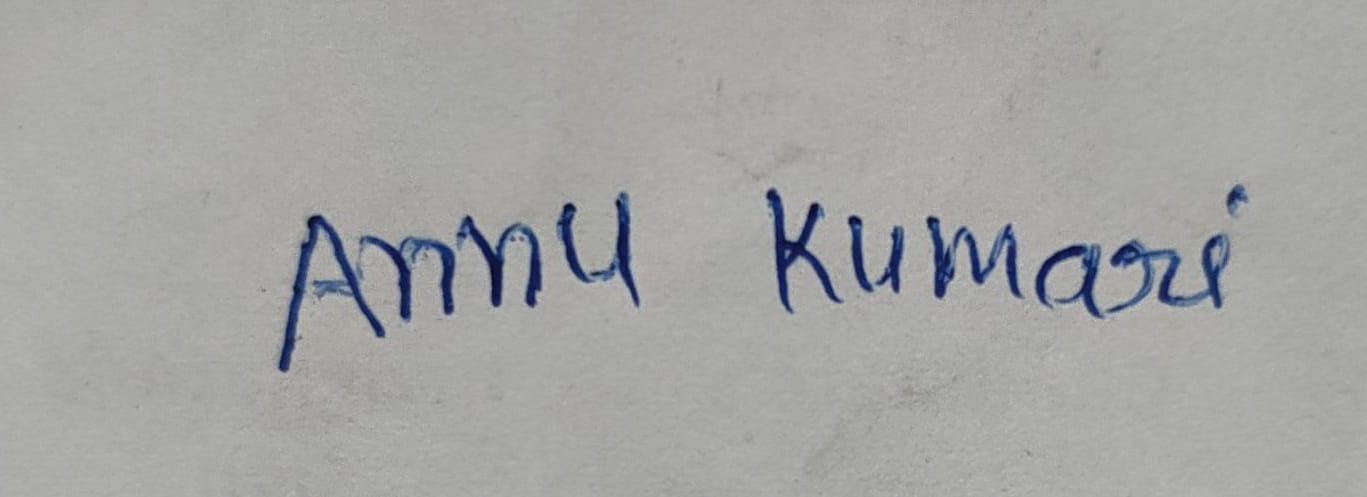 Annu Kumari